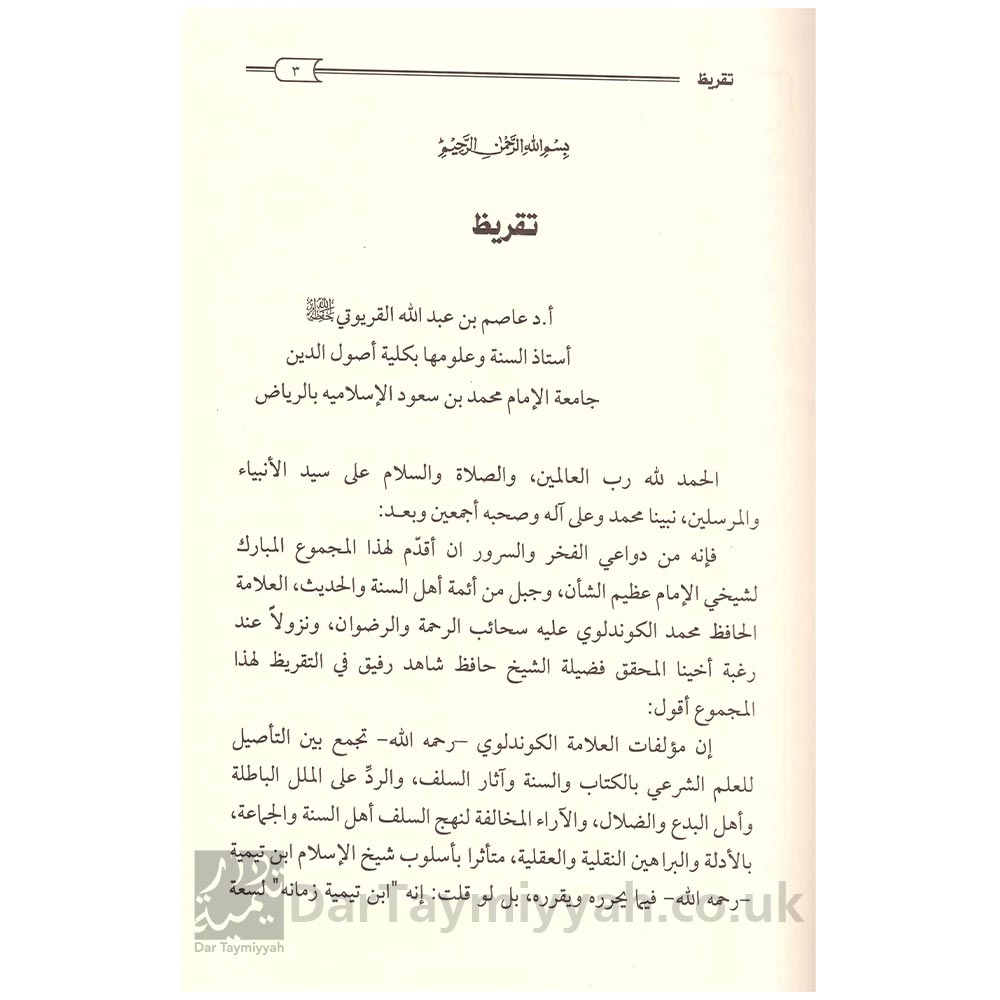 تقريظ
٣
بسم الله الرحمن الرحيم
تقريظ
أ.د عاصم بن عبد الله القريوتي حفظه الله
أستاذ السنة وعلومها بكلية أصول الدين
جامعة الإمام محمد بن سعود الإسلاميه بالرياض
الحمد لله رب العالمين، والصلاة والسلام على سيد الأنبياء
والمرسلين، نبينا محمد وعلى آله وصحبه أجمعين وبعـد:
فإنه من دواعي الفخر والسرور ان أقدّم لهذا المجموع المبارك
لشيخي الإمام عظيم الشأن، وجبل من أئمة أهل السنة والحديث، العلامة
الحافظ محمد الكوندلوي عليه سحائب الرحمة والرضوان، ونزولاً عند
رغبة أخينا المحقق فضيلة الشيخ حافظ شاهد رفيق في التقريظ لهذا
المجموع أقول:
إن مؤلفات العلامة الكوندلوي –رحمه الله– تجمع بين التأصيل
للعلم الشرعي بالكتاب والسنة وآثار السلف، والردِّ على الملل الباطلة
وأهل البدع والضلال، والآراء المخالفة لنهج السلف أهل السنة والجماعة،
بالأدلة والبراهين النقلية والعقلية، متأثرا بأسلوب شيخ الإسلام ابن تيمية
–رحمه الله– فيما يحرره ويقرره، بل لو قلت: إنه "ابن تيمية زمانه" لسعة
Dar Taymiyyah
DarTaymiyyah.co.uk